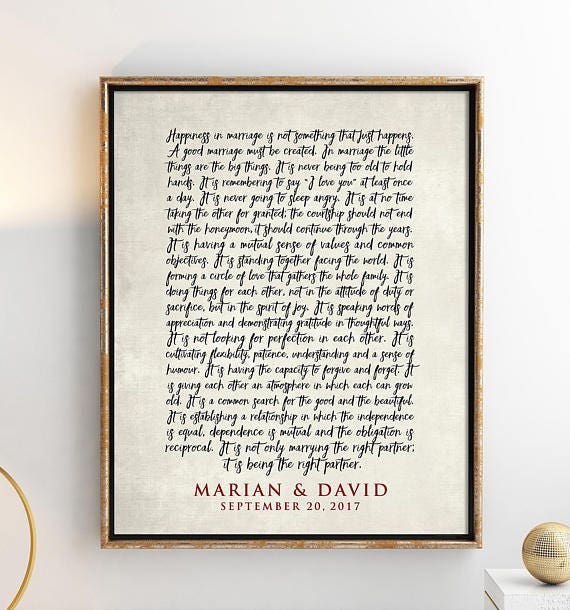 Happiness in marriage is not something that just happens.
A good marriage must be created. In marriage the little
things are the big things. It is never being too old to hold
hands. It is remembering to say "I love you" at least once
a day. It is never going to sleep angry. It is at no time
taking the other for granted; the courtship should not end
with the honeymoon, it should continue through the years.
It is having a mutual sense of values and common
objectives. It is standing together facing the world. It is
forming a circle of love that gathers the whole family. It is
doing things for each other, not in the attitude of duty or
sacrifice, but in the spirit of joy. It is speaking words of
appreciation and demonstrating gratitude in thoughtful ways.
It is not looking for perfection in each other. It is
cultivating flexibility, patience, understanding and a sense of
humour. It is having the capacity to forgive and forget. It
is giving each other an atmosphere in which each can grow
old. It is a common search for the good and the beautiful.
It is establishing a relationship in which the independence
is equal, dependence is mutual and the obligation is
reciprocal. It is not only marrying the right partner;
it is being the right partner.
MARIAN & DAVID
SEPTEMBER 20, 2017